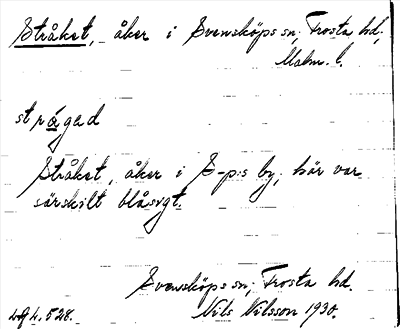 Stråket, åker i Svensköps sn, Frosta hd,
Malm. l.
strågad
Stråket, åker i S-p:s by, här var
särskilt blåsigt.
Svensköps sn, Frosta hd.
Nils Nilsson 1930.
4. 528.